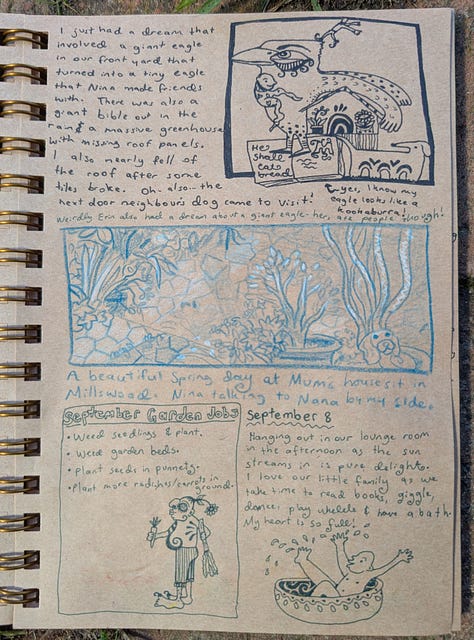 I just had a dream that
involved a giant eagle
in our front yard that
turned into a tiny eagle
that Nina made friends
with. There was also a
giant bible out in the
rain & a massive greenhouse
with missing roof panels.
I also nearly fell of
the roof after some
tiles broke. Oh - also - the
next door neighbours dog came to visit!
He
shall
eats
bread
↳ yes, I know my
eagle looks like a
kookaburra!
Weirdly Erin also had a dream about a giant eagle - hers ate people though!
A beautiful Spring day at Mums housesit in
Millswood. Nina talking to Nana by my side.
September Garden Jobs
• Weed seedlings & plant.
• Weed garden beds.
• plant seeds in punnets.
• Plant more radishes/carrots in
ground.
September 8
Hanging out in our lounge room
in the afternoon as the sun
streams in is pure delight.
I love our little family as we
take time to read books, giggle,
dance, play ukelele & have a bath.
My heart is so full!